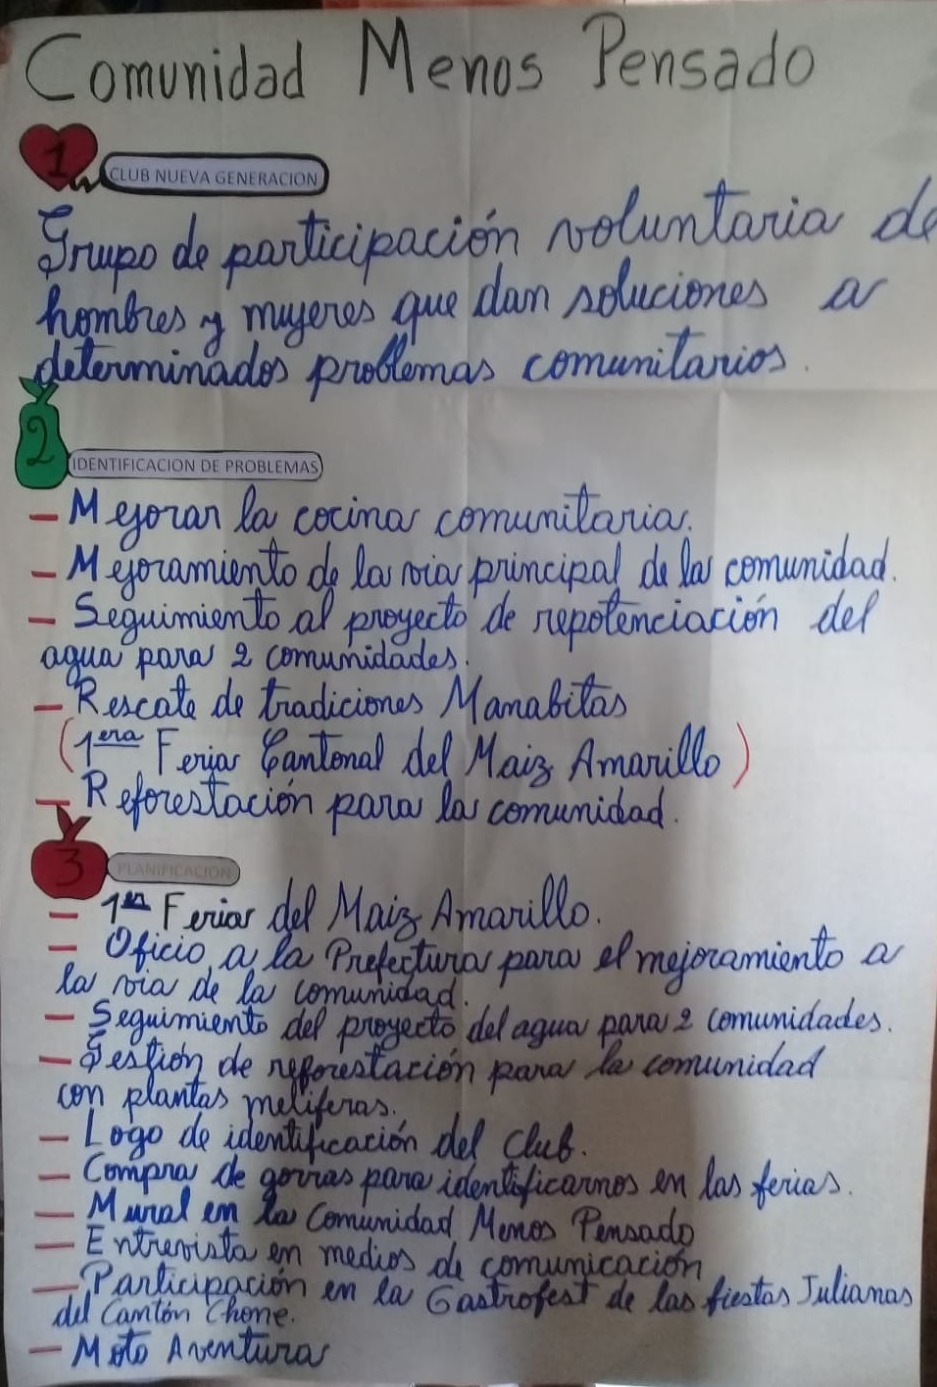 Comunidad Menos Pensado
1
CLUB NUEVA GENERACION
Grupo de participación voluntaria de
hombres y mujeres que dan soluciones a
determinados problemas comunitarios.
2
IDENTIFICACION DE PROBLEMAS
- Mejorar la cocina comunitaria.
- Mejoramiento de la via principal de la comunidad.
- Seguimiento al proyecto de repotenciación del
agua para 2 comunidades.
- Rescate de tradiciones Manabitas
(1era Feria Cantonal del Maiz Amarillo)
- Reforestación para la comunidad.
3
PLANIFICACION
- 1ra Feria del Maiz Amarillo.
- Oficio a la Prefectura para el mejoramiento a
la via de la comunidad.
- Seguimiento del proyecto del agua para 2 comunidades.
- Gestión de reforestación para la comunidad
con plantas meliferas.
- Logo de identificación del Club.
- Compra de gorras para identificarnos en las ferias.
- Mural en la Comunidad Menos Pensado
- Entrevista en medios de comunicación
- Participación en la Gastrofest de las fiestas Julianas
del Cantón Chone.
- Moto Aventura